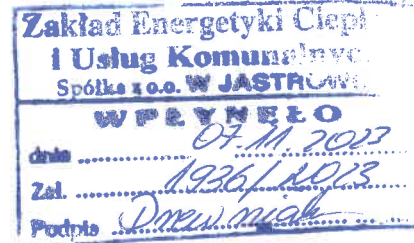 Zakład Energetyki Ciepl
i Usług Komunalnyc
Spółka z o.o. W JASTROWI
WPŁYNĘŁO
dnia 07.11.2023
Zał. 1936/2023
Podpis Drewniak